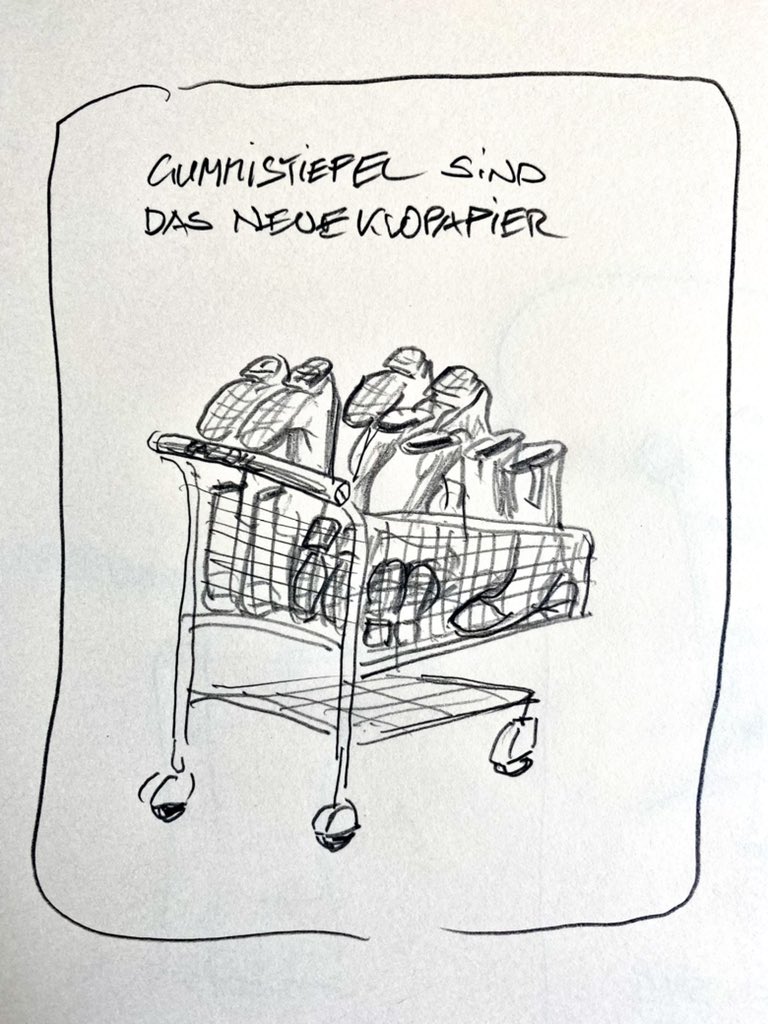 GUMMISTIEFEL SIND
DAS NEUE KLOPAPIER